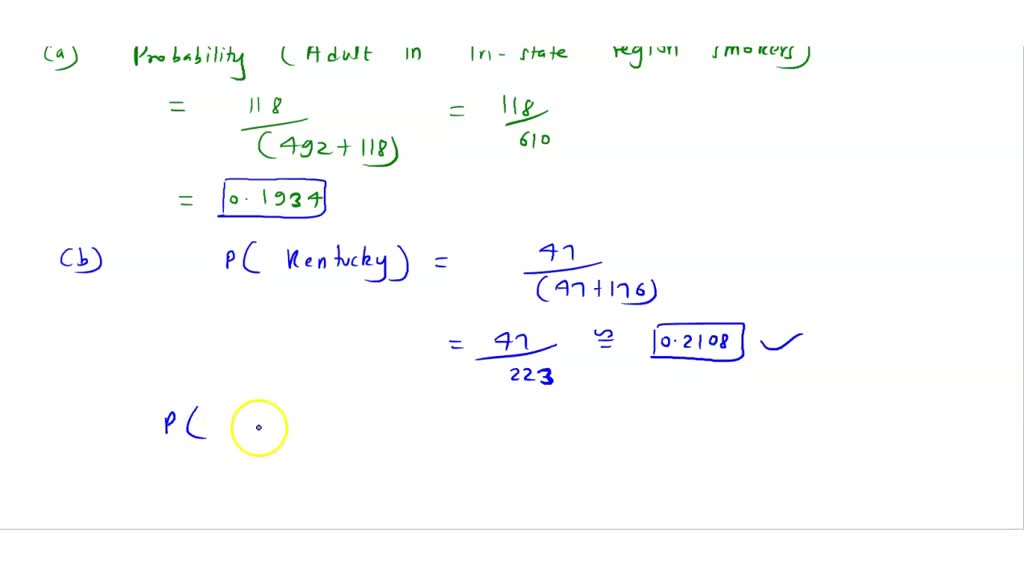 (a) Probability (Adult in tri-state region smokers)
= 118/(492+118) = 118/610
= 0.1934
(b) P( Kentucky) = 47/(47+176)
= 47/223 ≅ 0.2108 ✓
P(